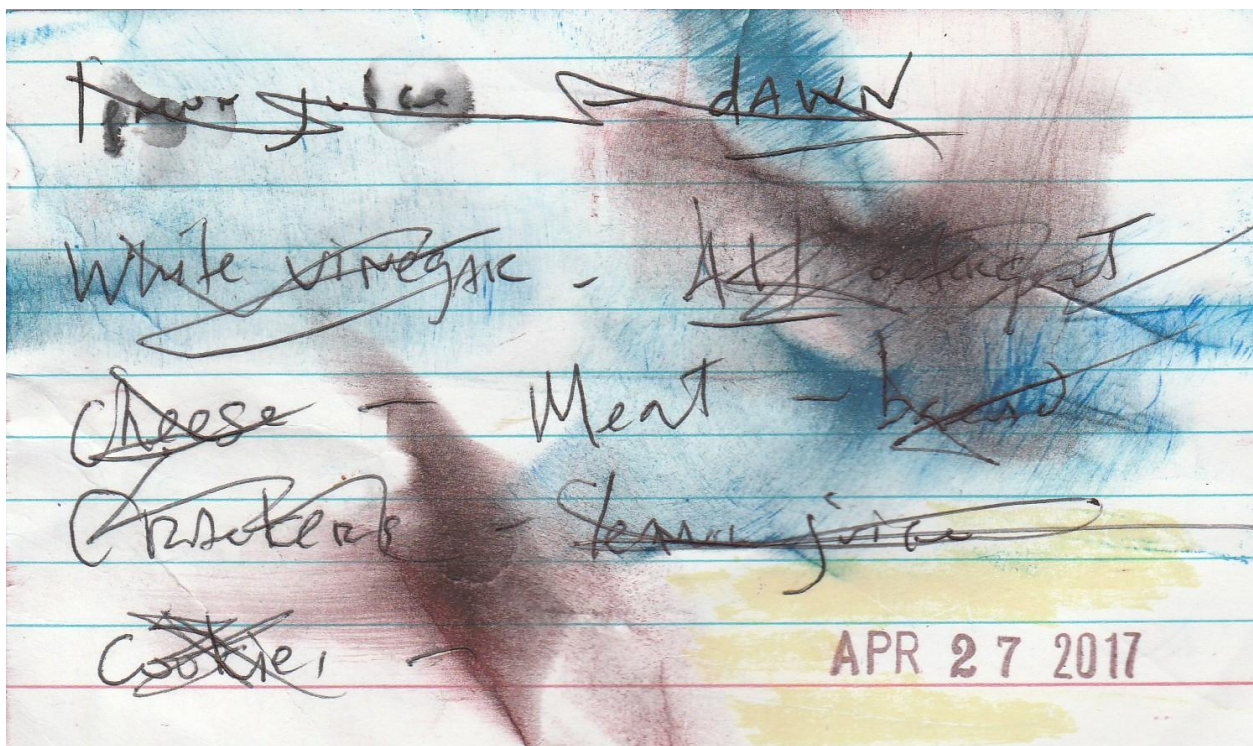 Lemon juice - dAWN
White VINEGAR - All detergent
Cheese - Meat - bread
CRACKERS - lemon juice
Cookies -
APR 27 2017